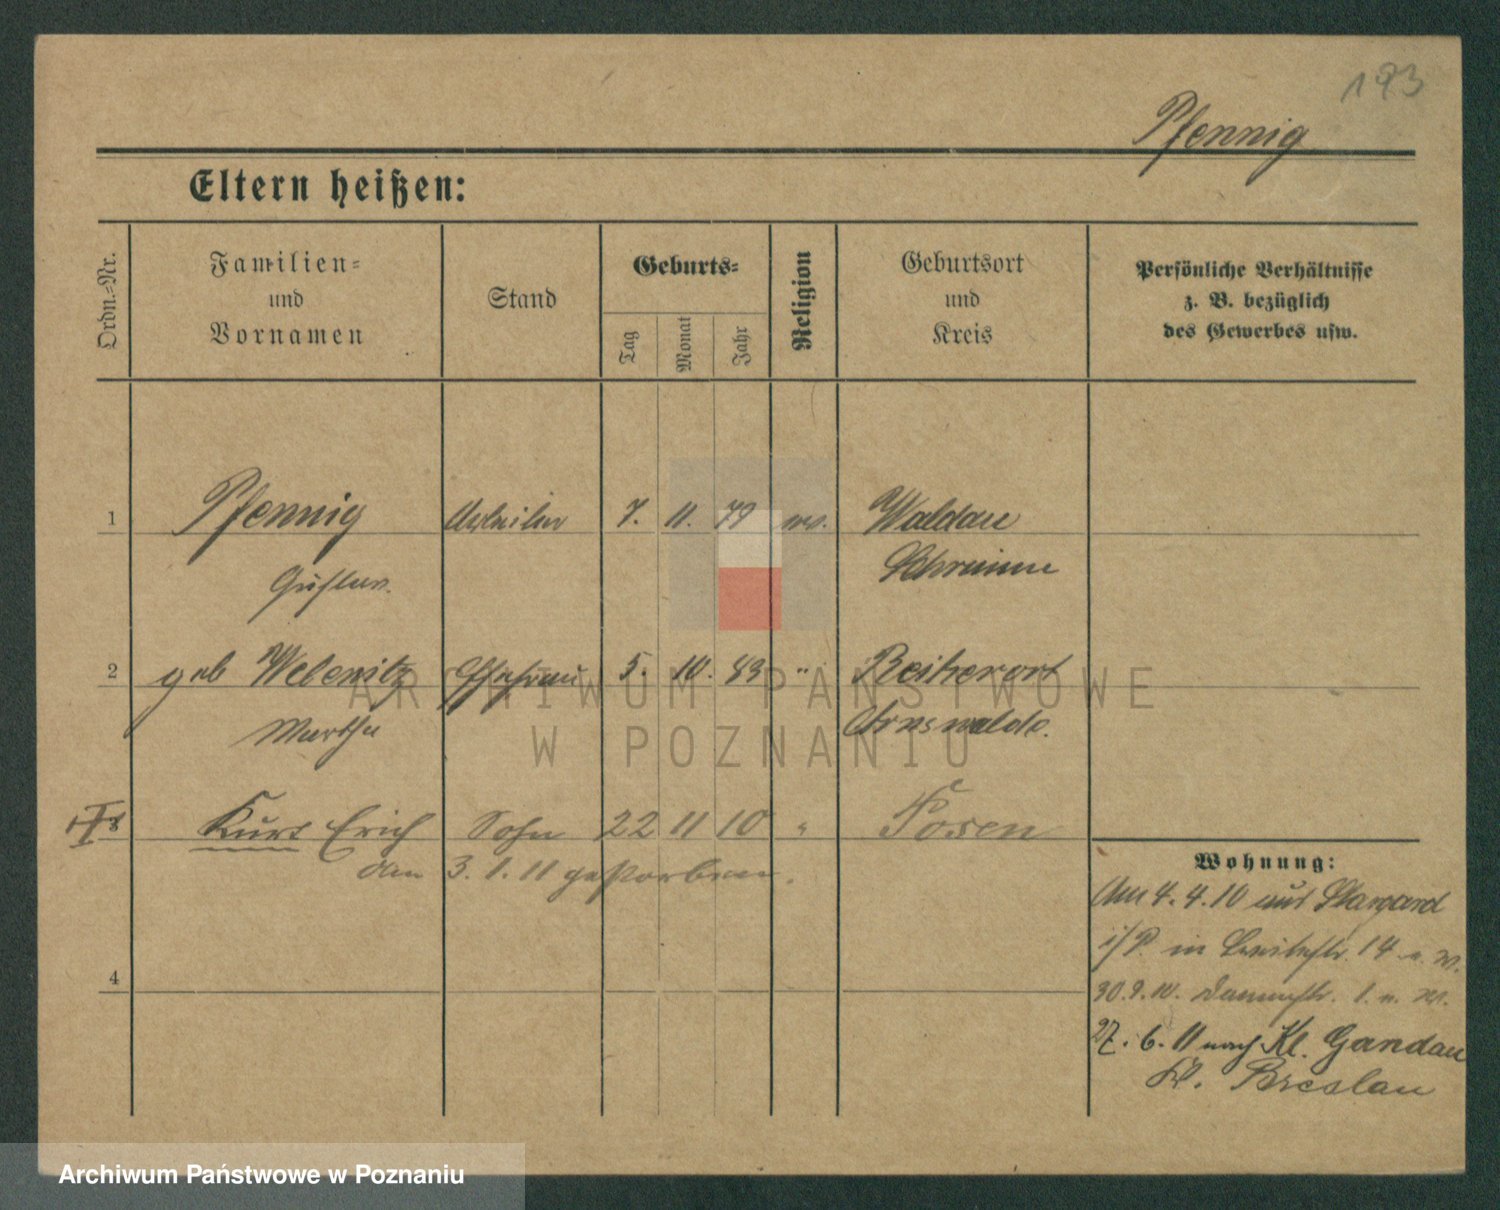 193
Pfennig
Eltern heißen:
Ordn.-Nr.
Familien-
und
Vornamen
Stand
Geburts-
Tag
Monat
Jahr
Religion
Geburtsort
und
Kreis
Persönliche Verhältnisse
z. B. bezüglich
des Gewerbes usw.
1 Pfennig Arbeiter 7. 11. 79 ev. Waldau
Gustav. Schrimm
2 geb Webenitz Ehefrau 5. 10. 83 " Reitzerort
Martha Arnswalde.
3 Kurt Erich Sohn 22 11 10 " Posen
am 3. 1. 11 gestorben.
4
Wohnung:
Am 4. 4. 10 aus Stargard
i/P. in 14
30.9.10. Dammstr. 1.
27. 6. 11 nach Kl. Gandau
Kr. Breslau
ARCHIWUM PAŃSTWOWE
W POZNANIU
Archiwum Państwowe w Poznaniu